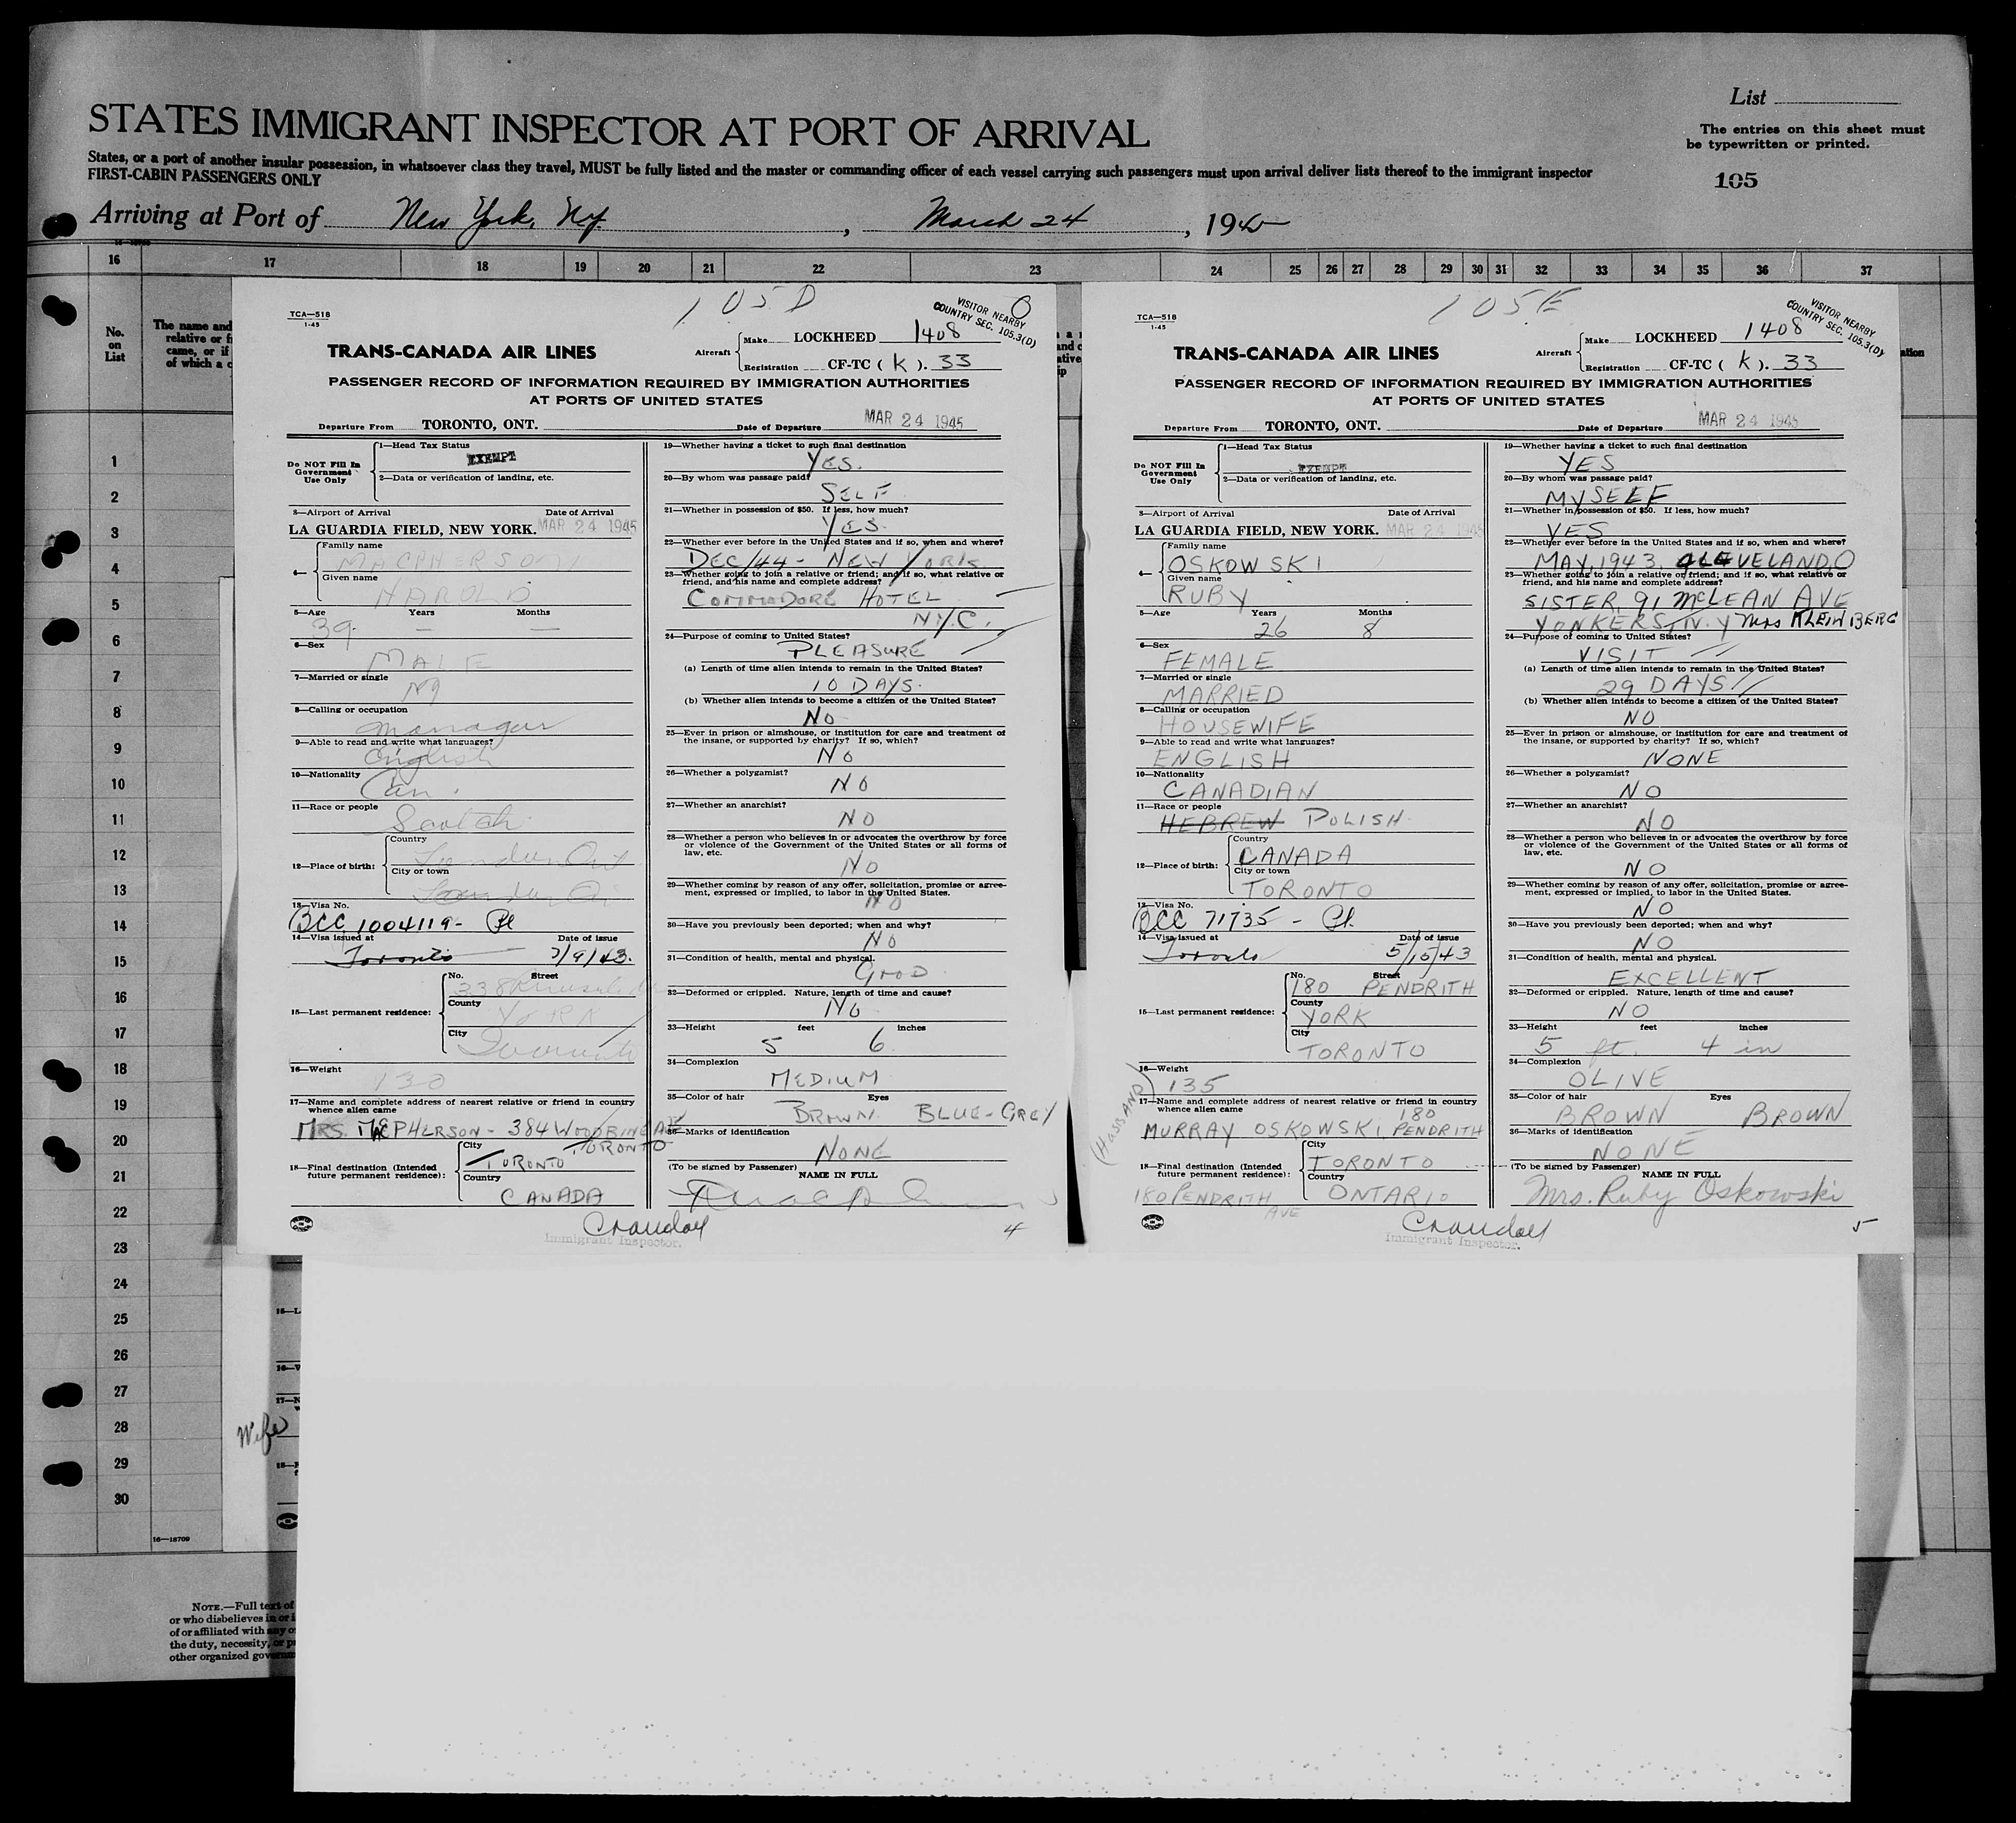 List
STATES IMMIGRANT INSPECTOR AT PORT OF ARRIVAL
The entries on this sheet must
be typewritten or printed.
States, or a port of another insular possession, in whatsoever class they travel, MUST be fully listed and the master or commanding officer of each vessel carrying such passengers must upon arrival deliver lists thereof to the immigrant inspector
FIRST-CABIN PASSENGERS ONLY
105
Arriving at Port of New York, Ny. , March 24 , 1945
16 17 18 19 20 21 22 23 24 25 26 27 28 29 30 31 32 33 34 35 36 37
No.
on
List
The name and
relative or f
came, or if
of which a c
1
2
3
4
5
6
7
8
9
10
11
12
13
14
15
16
17
18
19
20
21
22
23
24
25
26
27
28
29
30
Wife
16—18709
NOTE.—Full text of
or who disbelieves in or i
of or affiliated with any o
the duty, necessity, or p
other organized govern
105 D
TCA—518
1-45
VISITOR NEARBY
COUNTRY SEC. 105.3(D)
TRANS-CANADA AIR LINES
Aircraft
Make LOCKHEED 1408
Registration CF-TC ( K ). 33
PASSENGER RECORD OF INFORMATION REQUIRED BY IMMIGRATION AUTHORITIES
AT PORTS OF UNITED STATES
Departure From TORONTO, ONT. Date of Departure MAR 24 1945
Do NOT Fill In
Government
Use Only
1—Head Tax Status
EXEMPT
2—Data or verification of landing, etc.
3—Airport of Arrival Date of Arrival
LA GUARDIA FIELD, NEW YORK. MAR 24 1945
4—
Family name
MACPHERSON
Given name
HAROLD
5—Age Years Months
39 — —
6—Sex
MALE
7—Married or single
M
8—Calling or occupation
Manager
9—Able to read and write what languages?
English
10—Nationality
Can.
11—Race or people
Scotch
12—Place of birth:
Country
London Ont
City or town
London On
13—Visa No.
BCC 1004119- Pl
14—Visa issued at Date of issue
Toronto 3/9/43.
15—Last permanent residence:
No. Street
338
County
YORK
City
Toronto
16—Weight
130
17—Name and complete address of nearest relative or friend in country
whence alien came
MRS. MACPHERSON - 384 WOODBINE AVE
TORONTO
18—Final destination (Intended
future permanent residence):
City
TORONTO
Country
CANADA
19—Whether having a ticket to such final destination
YES.
20—By whom was passage paid?
SELF
21—Whether in possession of $50. If less, how much?
YES.
22—Whether ever before in the United States and if so, when and where?
DEC/44 - NEW YORK
23—Whether going to join a relative or friend; and if so, what relative or
friend, and his name and complete address?
COMMADORE HOTEL
N.Y.C.
24—Purpose of coming to United States?
PLEASURE
(a) Length of time alien intends to remain in the United States?
10 DAYS.
(b) Whether alien intends to become a citizen of the United States?
NO
25—Ever in prison or almshouse, or institution for care and treatment of
the insane, or supported by charity? If so, which?
NO
26—Whether a polygamist?
NO
27—Whether an anarchist?
NO
28—Whether a person who believes in or advocates the overthrow by force
or violence of the Government of the United States or all forms of
law, etc.
NO
29—Whether coming by reason of any offer, solicitation, promise or agree-
ment, expressed or implied, to labor in the United States.
NO
30—Have you previously been deported; when and why?
NO
31—Condition of health, mental and physical.
GOOD
32—Deformed or crippled. Nature, length of time and cause?
NO
33—Height feet inches
5 6
34—Complexion
MEDIUM
35—Color of hair Eyes
BROWN. BLUE-GREY
36—Marks of identification
NONE
(To be signed by Passenger) NAME IN FULL
Crandall
Immigrant Inspector.
4
105 E
TCA—518
1-45
VISITOR NEARBY
COUNTRY SEC. 105.3(D)
TRANS-CANADA AIR LINES
Aircraft
Make LOCKHEED 1408
Registration CF-TC ( K ). 33
PASSENGER RECORD OF INFORMATION REQUIRED BY IMMIGRATION AUTHORITIES
AT PORTS OF UNITED STATES
Departure From TORONTO, ONT. Date of Departure MAR 24 1945
Do NOT Fill In
Government
Use Only
1—Head Tax Status
EXEMPT
2—Data or verification of landing, etc.
3—Airport of Arrival Date of Arrival
LA GUARDIA FIELD, NEW YORK. MAR 24 1945
4—
Family name
OSKOWSKI
Given name
RUBY
5—Age Years Months
26 8
6—Sex
FEMALE
7—Married or single
MARRIED
8—Calling or occupation
HOUSEWIFE
9—Able to read and write what languages?
ENGLISH
10—Nationality
CANADIAN
11—Race or people
HEBREW POLISH
12—Place of birth:
Country
CANADA
City or town
TORONTO
13—Visa No.
BCC 71735 - Pl.
14—Visa issued at Date of issue
Toronto 5/15/43
15—Last permanent residence:
No. Street
180 PENDRITH
County
YORK
City
TORONTO
16—Weight
135
17—Name and complete address of nearest relative or friend in country
whence alien came
(HUSBAND)
180
MURRAY OSKOWSKI, PENDRITH
18—Final destination (Intended
future permanent residence):
City
TORONTO
Country
180 PENDRITH AVE
ONTARIO
19—Whether having a ticket to such final destination
YES
20—By whom was passage paid?
MYSELF
21—Whether in possession of $50. If less, how much?
YES
22—Whether ever before in the United States and if so, when and where?
MAY, 1943, CLEVELAND, O
23—Whether going to join a relative or friend; and if so, what relative or
friend, and his name and complete address?
SISTER, 91 McLEAN AVE
YONKERS, N.Y Mrs KLEINBERG
24—Purpose of coming to United States?
VISIT
(a) Length of time alien intends to remain in the United States?
29 DAYS
(b) Whether alien intends to become a citizen of the United States?
NO
25—Ever in prison or almshouse, or institution for care and treatment of
the insane, or supported by charity? If so, which?
NONE
26—Whether a polygamist?
NO
27—Whether an anarchist?
NO
28—Whether a person who believes in or advocates the overthrow by force
or violence of the Government of the United States or all forms of
law, etc.
NO
29—Whether coming by reason of any offer, solicitation, promise or agree-
ment, expressed or implied, to labor in the United States.
NO
30—Have you previously been deported; when and why?
NO
31—Condition of health, mental and physical.
EXCELLENT
32—Deformed or crippled. Nature, length of time and cause?
NO
33—Height feet inches
5 ft. 4 in
34—Complexion
OLIVE
35—Color of hair Eyes
BROWN BROWN
36—Marks of identification
NONE
(To be signed by Passenger) NAME IN FULL
Mrs. Ruby Oskowski
Crandall
Immigrant Inspector.
5